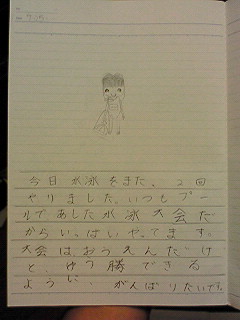 今日水泳をまた、2回
やりました。いつもプー
ルであした水泳大会だ
からいっぱいやってます。
大会は、おうえんだけ
と、ゆう勝できる
ように、がんばりたいです。